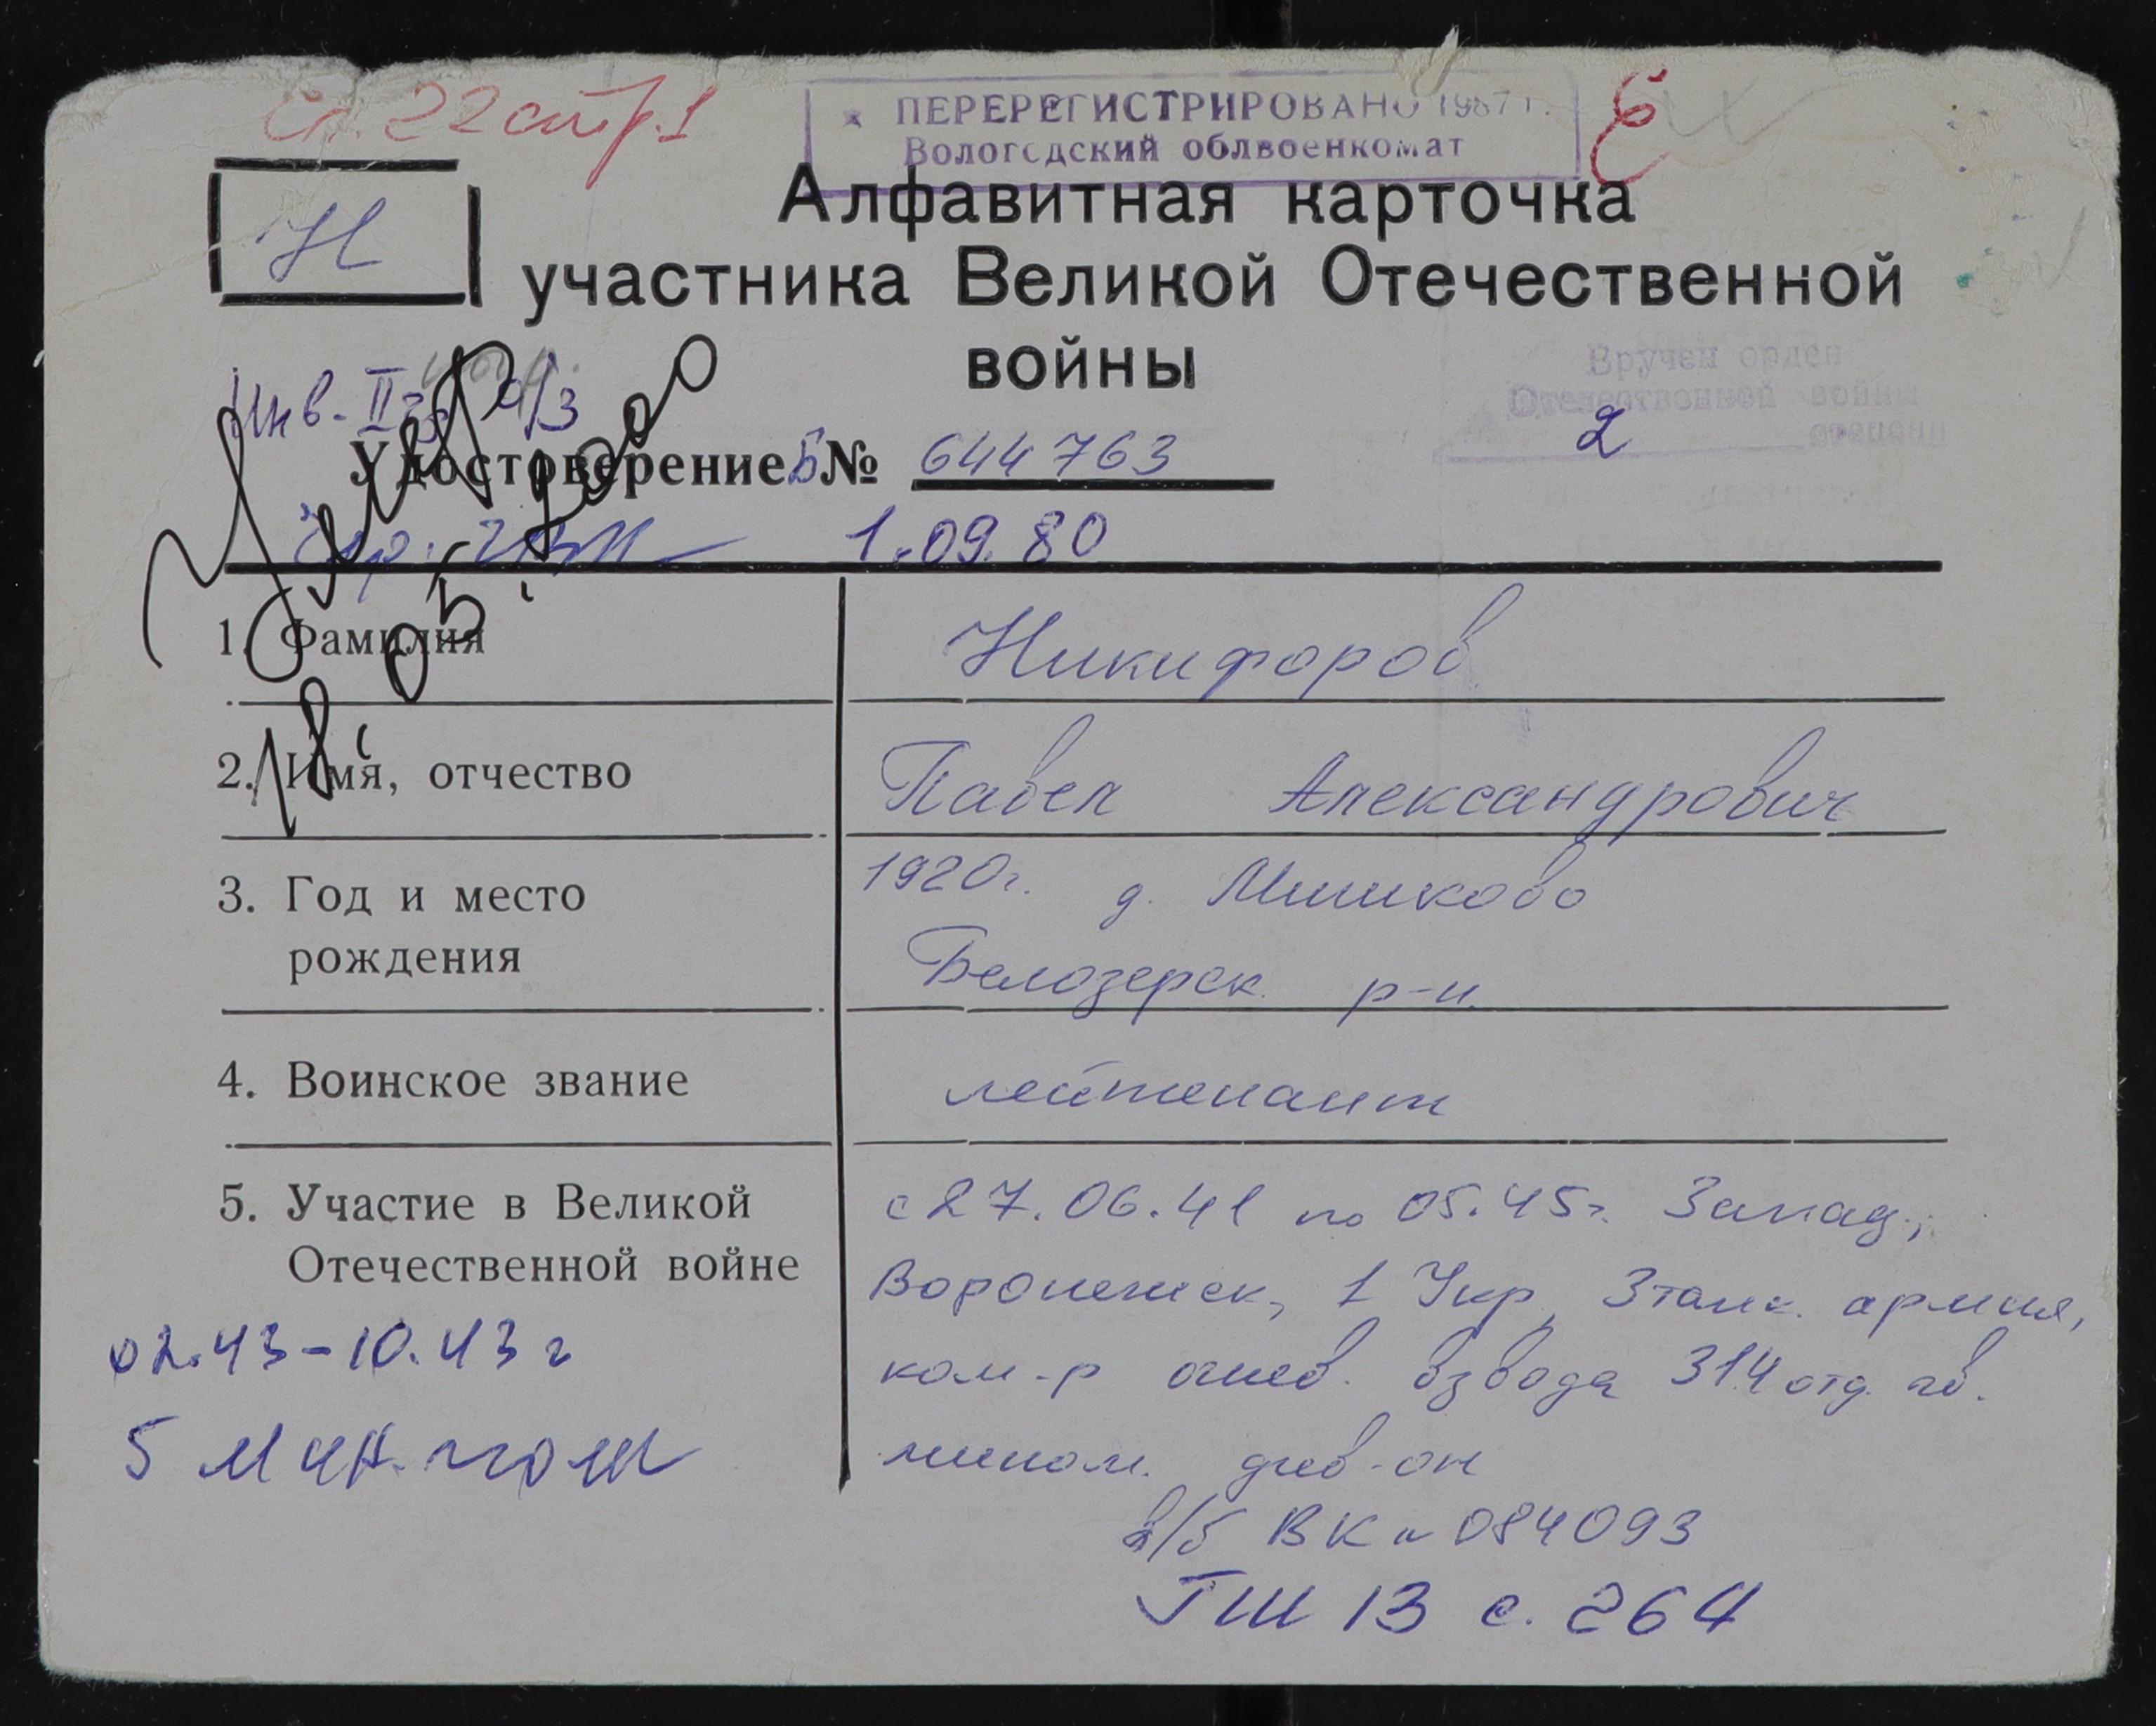 Сп. 22 стр. 1
ПЕРЕРЕГИСТРИРОВАНО 1987 г.
Вологодский облвоенкомат
Н
Алфавитная карточка
участника Великой Отечественной
войны
Инв. II гр о/з
Вручен орден
Отечественной войны
2 степени
Удостоверение Б № 644763
1.09.80
Умер
18.05.2000
1. Фамилия Никифоров
2. Имя, отчество Павел Александрович
3. Год и место 1920г. д. Мишково
рождения Белозерск. р-н.
4. Воинское звание лейтенант
5. Участие в Великой с 27.06.41 по 05.45г. Запад.,
Отечественной войне Воронежск, 1 Укр, 3 танк. армия,
02.43-10.43 г ком-р огнев. взвода 314 отд. гв.
5 мин. полк мином. див-он
в/б ВК № 084093
ГШ 13 с. 264